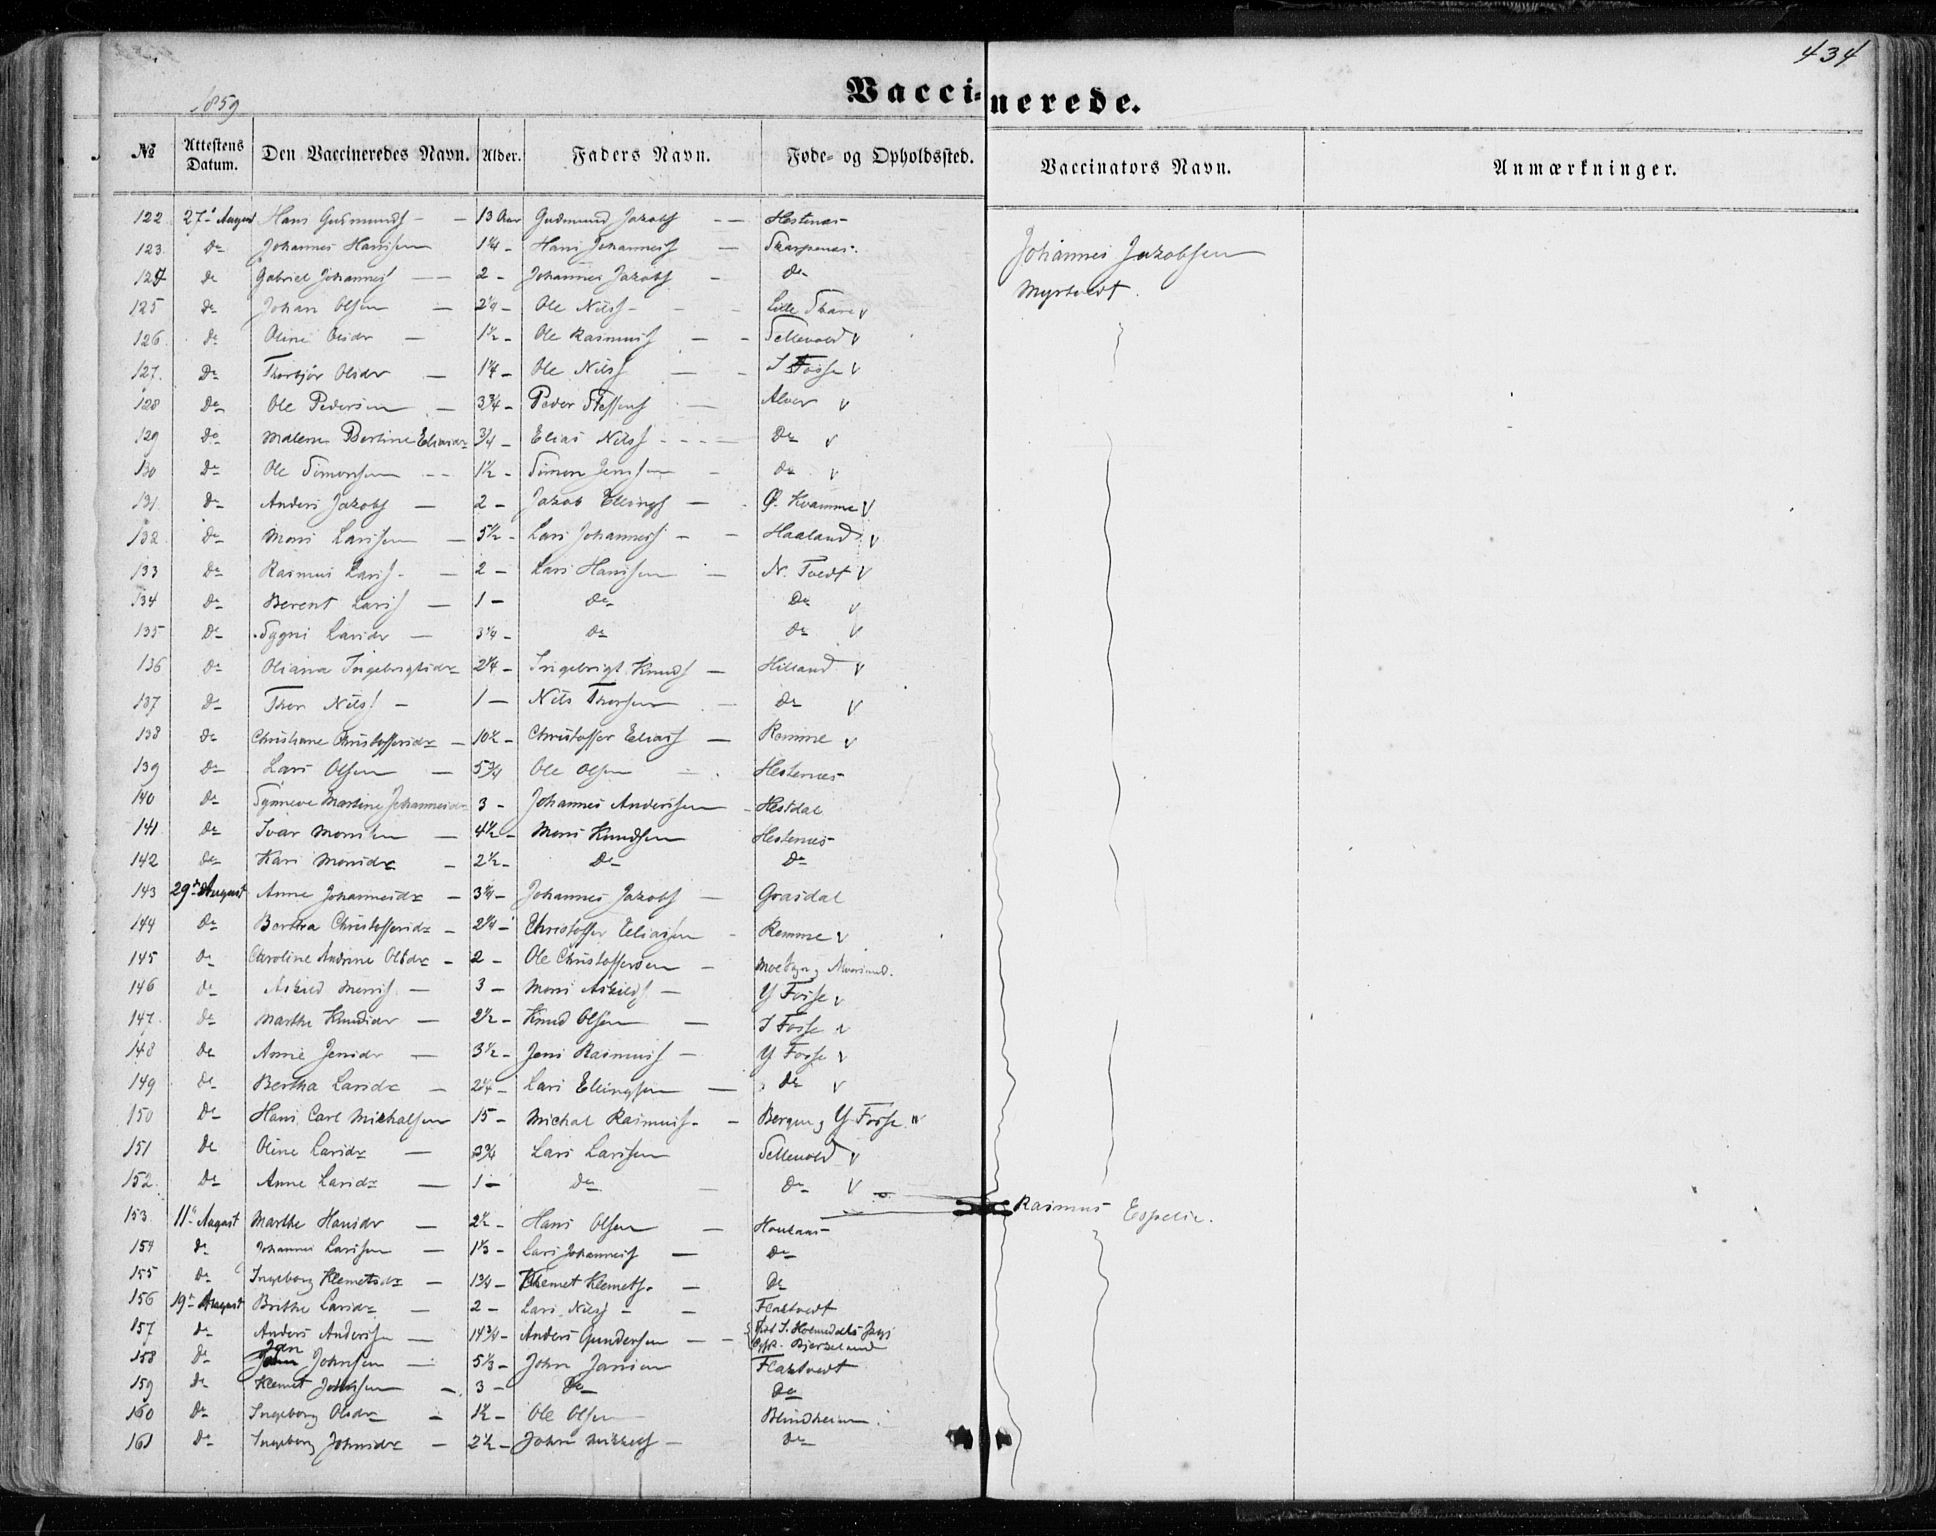 434
1859
Vaccinerede.
№ Attestens Datum. Den Vaccineredes Navn. Alder. Faders Navn. Føde- og Opholdssted. Vaccinators Navn. Anmærkninger.
122 27de August Hans Gudmunds — 13 Aar Gudmund Jakobs — Hestenes
123. Do Johannes Hansen 1¼ - Hans Johannes — Skarpenes. Johannes Jakobsen
124 do Gabriel Johannes — 2 - Johannes Jakobs — do Myrtvedt.
125 do Johan Olsen — 2¼ - Ole Nils - Lille Skare v
126 do Oline Olsdr — 1½ - Ole Rasmus — Sellevold v
127. Do Thorbjør Olsdr — 1¼ - Ole Nils — I Fosse v
128 Do Ole Pedersen — 3¾ - Peder Steffens — Alver v
129 Do Malene Bertine Eliasdr ¾ - Elias Nils — Do v
130 Do Ole Simonsen — 1½ - Simon Jensen — do v
131. Do Anders Jakobs — 2 - Jakob Ellings — Ø. Kvamme v
132 Do Mons Larssen — 5½ - Lars Johannes — Haaland v
133 Do Rasmus Lars — 2 - Lars Hanssen — N. Tvedt v
134 Do Berent Lars — 1 - do Do v
135 Do Sygni Larsdr — 3¼ - do do v
136 Do Oliana Ingebrigtsdr 2¼ - Ingebrigt Knuds — Hilland v
137 Do Thor Nils — 1 — Nils Thorsen — do v
138 Do Christiane Christoffersdr — 10½ - Christoffer Elias — Remme v
139 Do Lars Olsen — 5¾ Ole Olsen — Hestenes
140 Do Synneve Martine Johannesdr 3 - Johannes Anderssen — Hestdal
141 Do Ivar Monsen — 4½ - Mons Knudsen Hestenes
142 do Kari Monsdr — 2½ - Do Do
143 29de August Anne Johannesdr — 3¼ - Johannes Jakobs — Grasdal
144 Do Bertha Christoffersdr — 2¼ - Christoffer Eliassen - Remme v
145 do Caroline Andrine Olsdr — 2 - Ole Christoffersen — Alversund.
146 do Askild Mons — 3 - Mons Askilds — Y Fosse v
147. do Marthe Knudsdr — 2½ - Knud Olsen — I Fosse v
148 do Anne Jensdr — 3½ - Jens Rasmus — Y Fosse v
149 do Bertha Larsdr — 2¼ - Lars Ellingsen — do v
150 Do Hans Carl Michalsen 15 - Michal Rasmus - Bergen, Y Fosse v
151 do Oline Larsdr — 3¾ Lars Larssen Sellevold v
152. Do Anne Larsdr — 1 - do — do v
153 11te August Marthe Hansdr — 2½ - Hans Olsen — Houlaas Rasmus Espelie.
154 do Johannes Larssen — 1⅓ - Lars Johannes — Do
155 Do Ingeborg Klemetsdr — 1¾ - Klemet Klemets. — Do
156 19de August Brithe Larsdr — 2 - Lars Nils — Flaktvedt
157 do Anders Anderssen — 14¾ - Anders Gundersen — Fød I. Holmedahls Præg
Opf. Bjørkelund
158 Do Jan Johnsen — 5⅓ - John Jansen Flaktvedt
159 do Klemet Johnsen — 3 - Do Do
160 Do Ingeborg Olsdr — 1½ - Ole Olsen Blindheim
161 Do Ingeborg Johnsdr — 2½ - John Mikkels — do